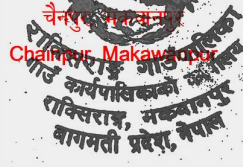 चैनपुर, मकवानपुर
Chainpur, Makawanpur
राक्सिराङ्ग गाउँपालिका
गाउँ कार्यपालिकाको
राक्सिराङ्ग, मकवानपुर
बागमती प्रदेश, नेपाल